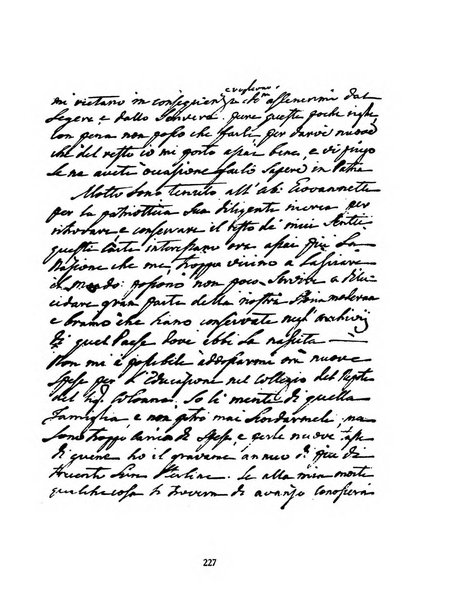 e vogliono
mi vietano in conseguenza ch'm' assenermi dal
Legere e dallo Scrivere. pure queste poche righe
con pena non posso che farle per darvi nuove
che del resto io mi porto assai bene, e vi prego
se ne avete occasione farlo Sapere in Patria
Molto sono tenuto all' Ab: Giovannetti
per la patriottica Sua diligente per
ritrovare e conservare il resto de' miei
queste Carte interessano ora assai più La
Nazione che me, troppo vicino a Lasciare
il Mondo: possono non poco Servire a dilu-
cidare gran parte della nostra Storia moderna
e bramo che siano conservate negl' Archivij
di quel Paese dove ebbi la nascita.
Non mi è possibile addossarmi ora nuove
Spese per l' Educazione nel Collegio del Nipote
del Sig: Colonna. So li meriti di quella
Famiglia, e non potrò mai Scordarmeli, ma
Sono troppo carico di Spese, e certe nuove
di quene ho il gravame annuo di più di
trecento Lire Sterline. Se alla mia morte
qualche cosa si troverà di avanzo conoscerà
227